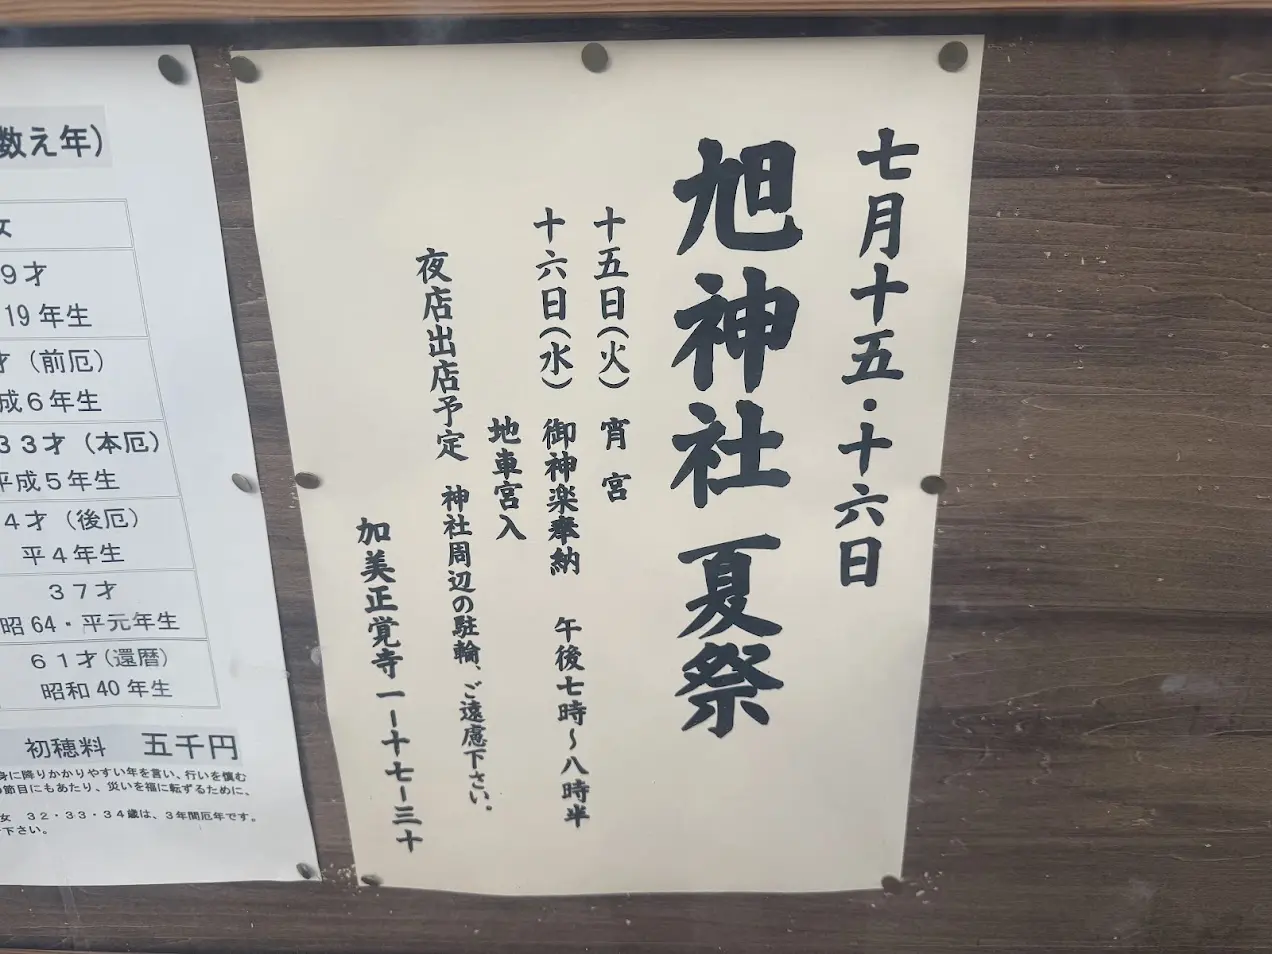 七月十五・十六日
旭神社 夏祭
十五日(火) 宵宮
十六日(水) 御神楽奉納 午後七時〜八時半
地車宮入
夜店出店予定 神社周辺の駐輪、ご遠慮下さい。
加美正覚寺一ー十七ー三十
数え年)
女
9才
19年生
才(前厄)
成6年生
33才(本厄)
平成5年生
4才(後厄)
平4年生
37才
昭64・平元年生
61才(還暦)
昭和40年生
初穂料 五千円
身に降りかかりやすい年を言い、行いを慎む
節目にもあたり、災いを福に転ずるために、
女 32・33・34歳は、3年間厄年です。
下さい。